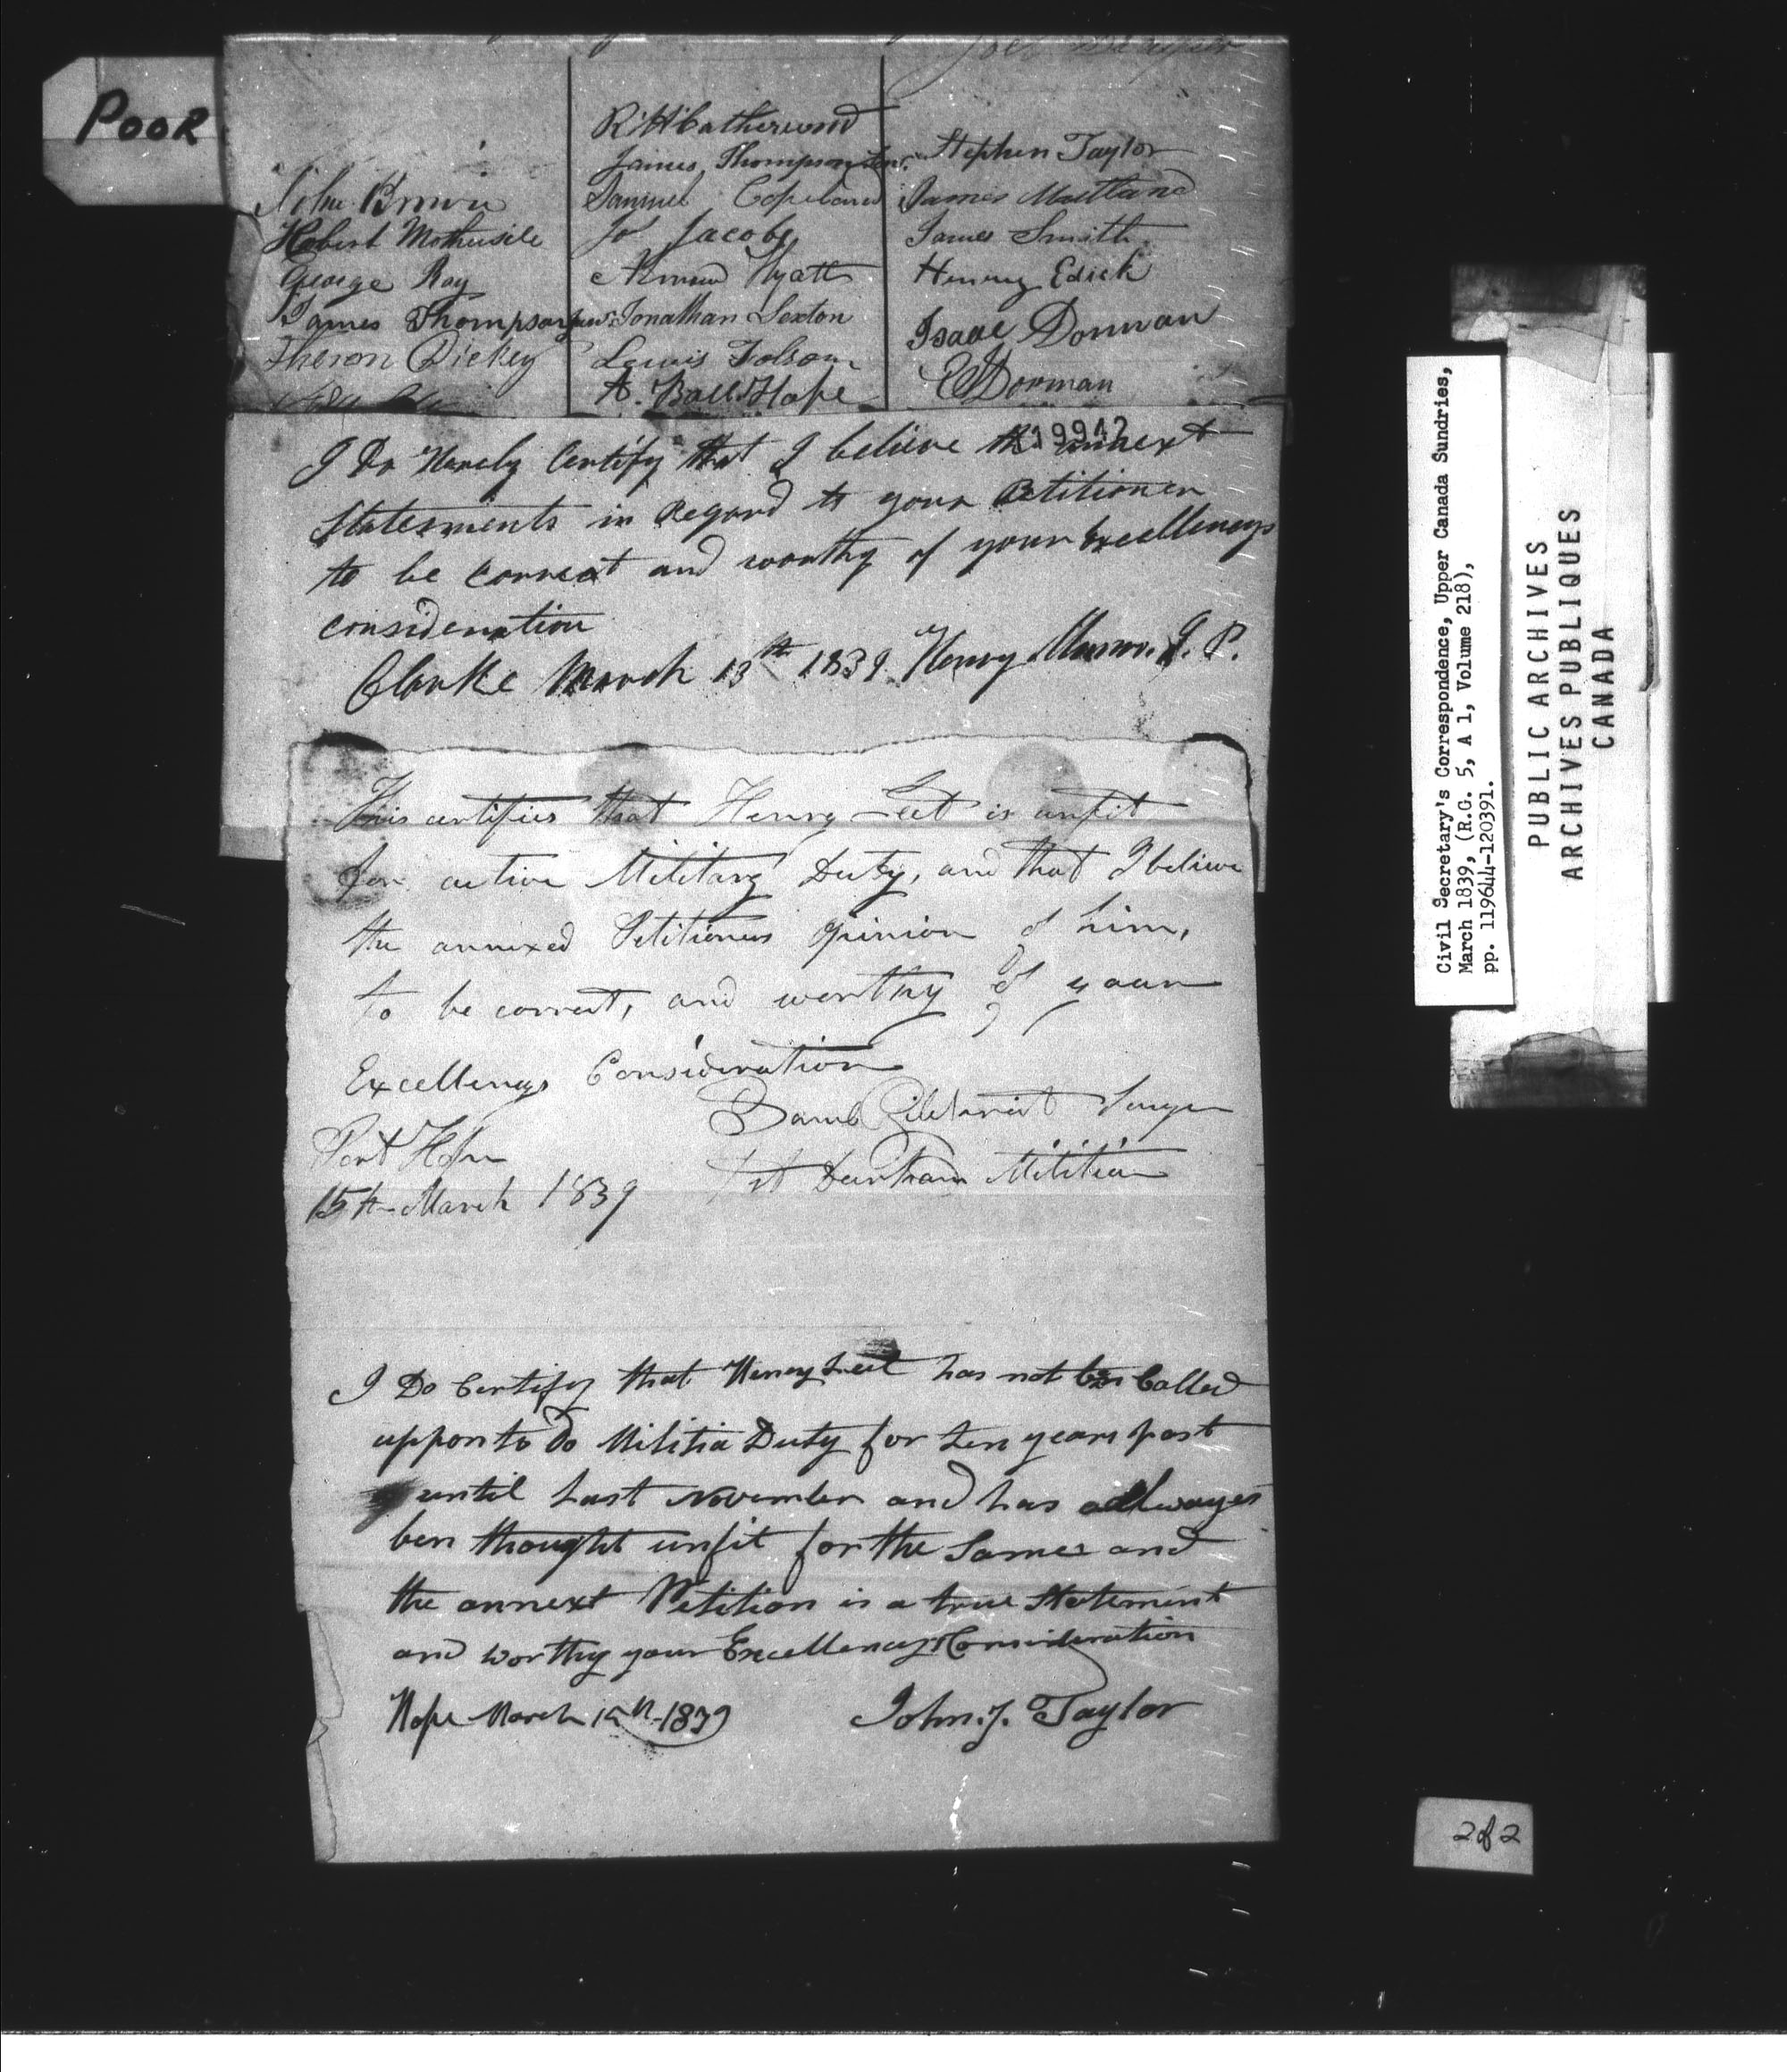 POOR
John Brown
Robert Mothersile
George Roy
James Thompson Junr
Theron Dickey
R H Catherwood
James Thompson Senr
Samuel Copeland
Js Jacobs
Wyatt
Jonathan Sexton
Lewis Folsom
A. Ball Hope
Stephen Taylor
James Maitland
James Smith
Henry Edick
Isaac Dorman
Dorman
119942
I Do Hereby Certify that I believe the annext
statesments in Regard to your Petitioner
to be correct and worthy of your Excellencys
consideration
Clarke March 13th 1839 Henry Munro. J. P.
This certifies that Henry Leet is unfit
for active Military Duty, and that I believe
the annexed Petitioners opinion of him,
to be correct, and worthy of your
Excellencys Consideration
Port Hope
15th March 1839
Gilchrist Surgn
1st Durham Militia
I Do Certify that Henry Leet has not ben Called
uppon to Do Militia Duty for ten years past
until Last November and has allways
ben thought unfit for the Same and
the annext Petition is a true Statement
and worthy your Excellencys Consideration
Hope March 1839
John. J. Taylor
Civil Secretary's Correspondence, Upper Canada Sundries,
March 1839, (R.G. 5, A 1, Volume 218),
pp. 119644-120391.
PUBLIC ARCHIVES
ARCHIVES PUBLIQUES
CANADA
2 of 2